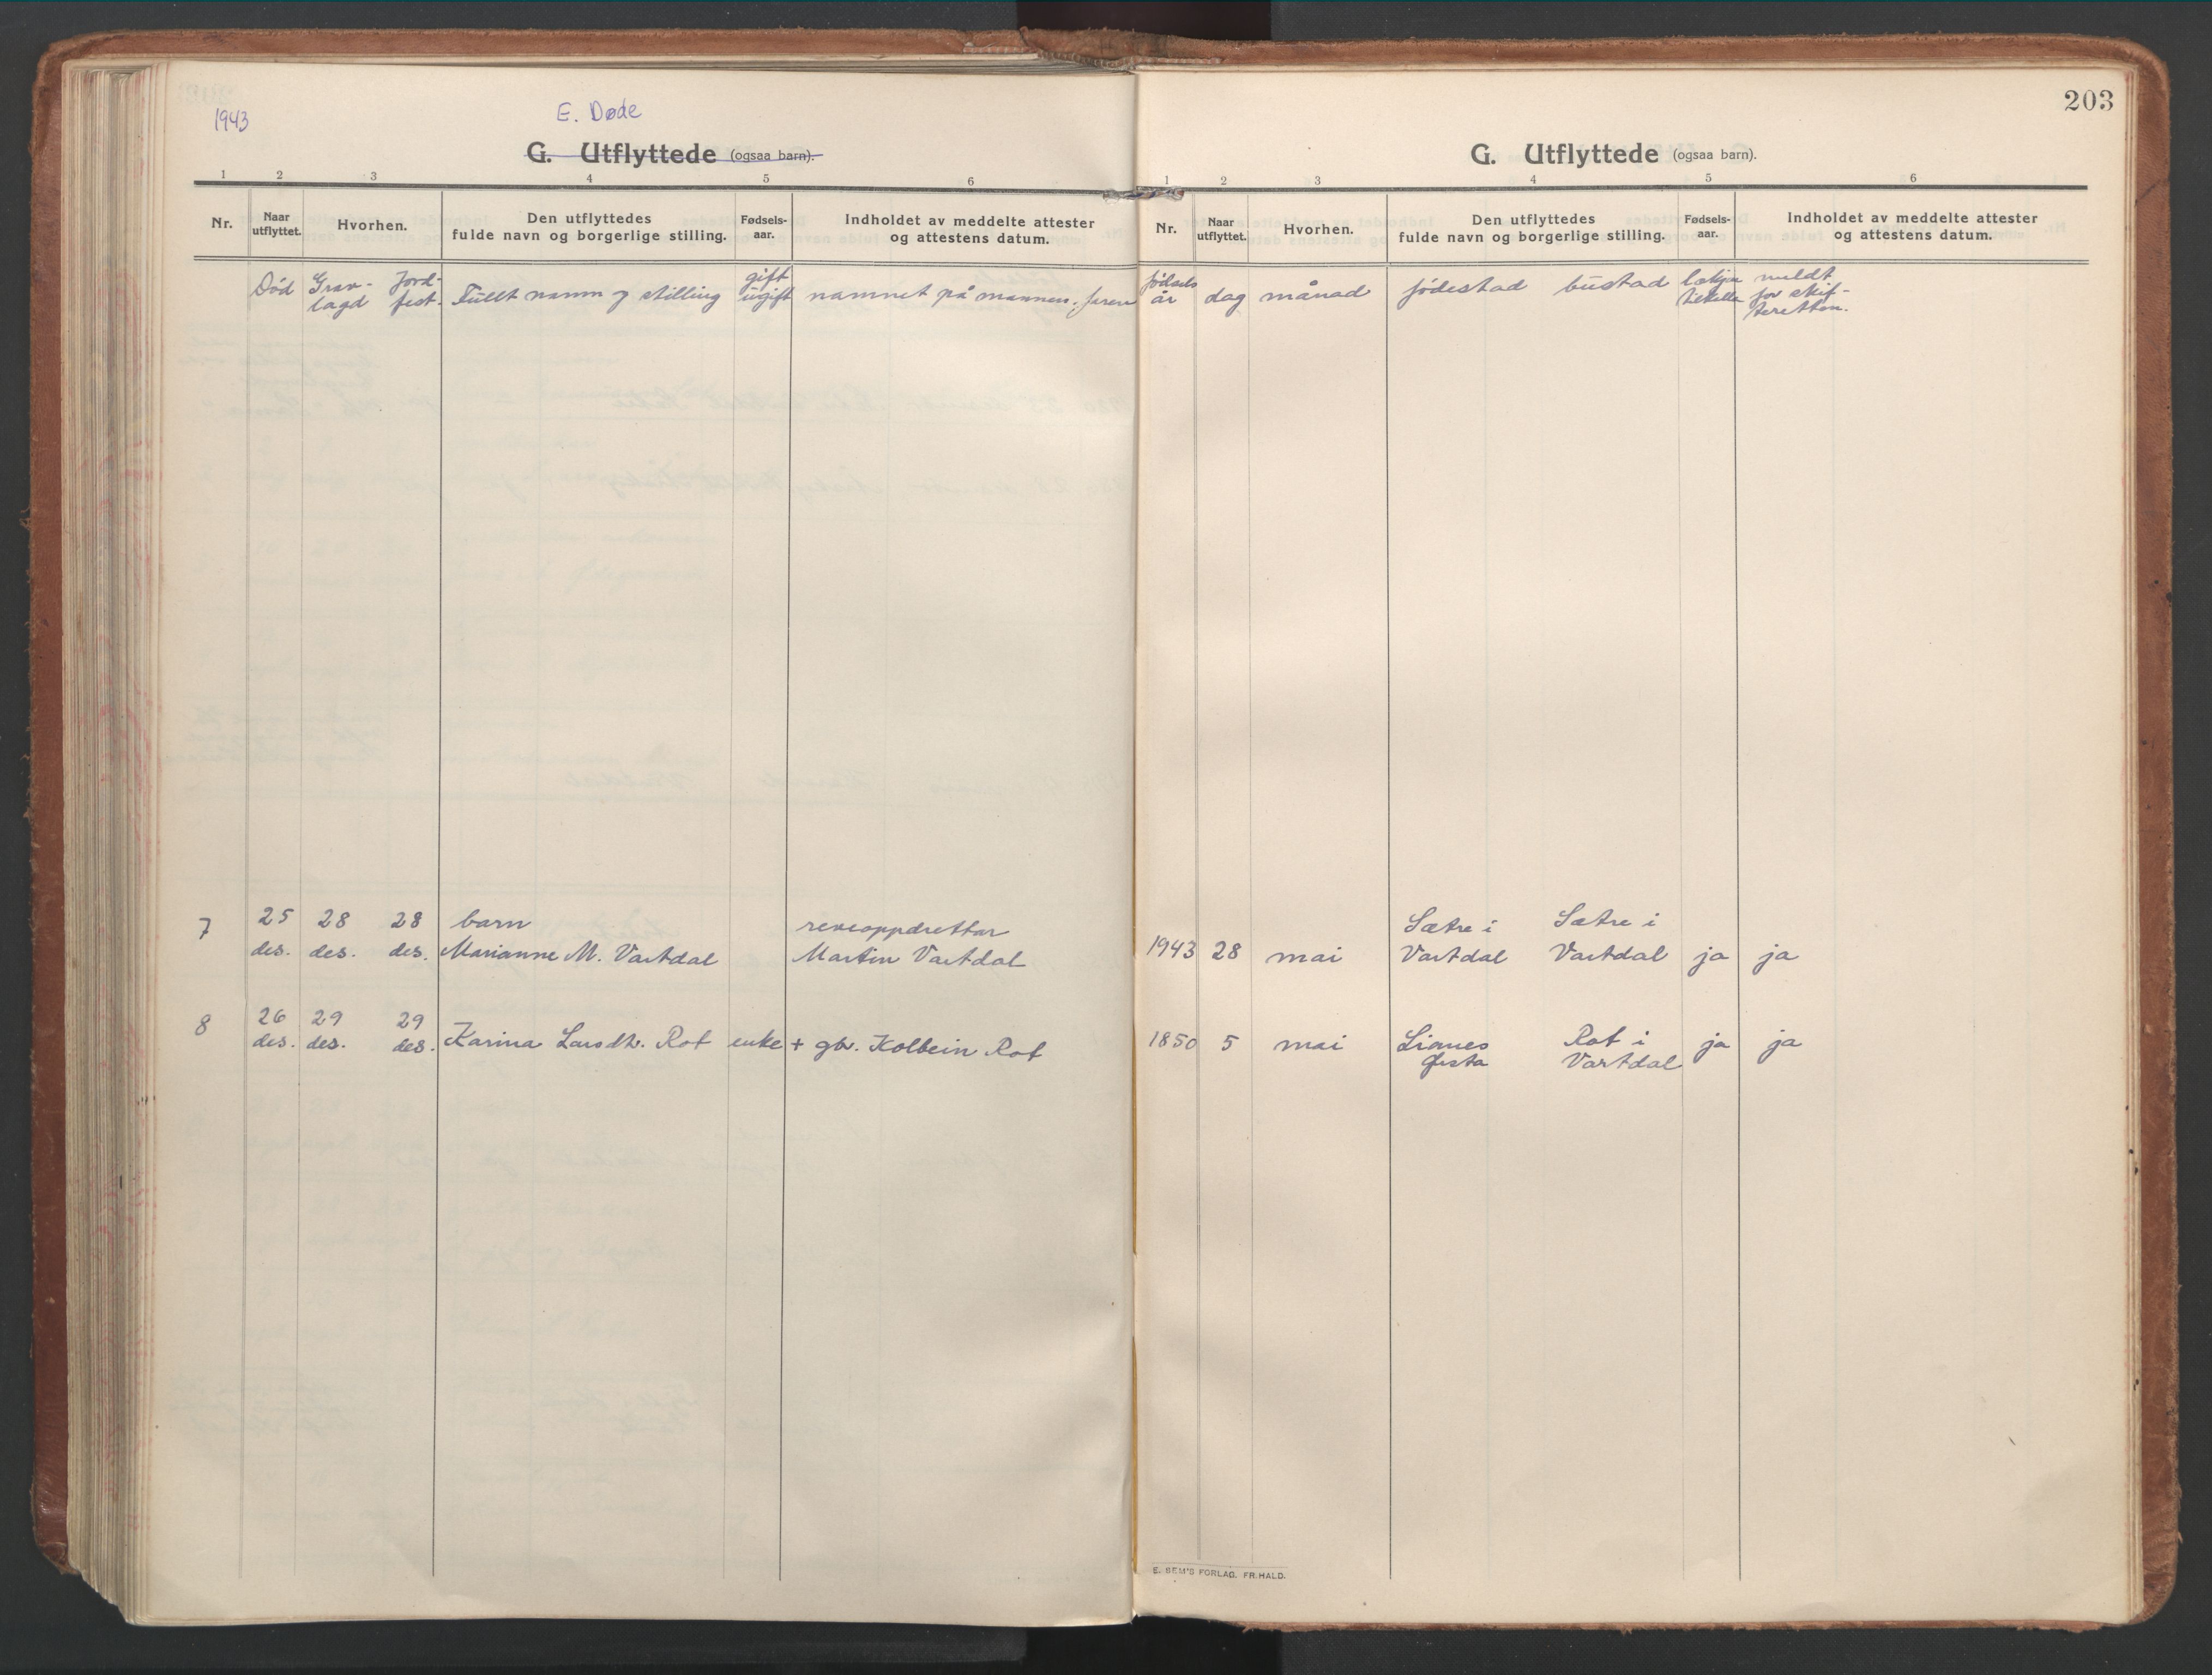 1943
E. Døde
G. Utflyttede (ogsaa barn).
1 2 3 4 5 6
Nr.
Naar
utflyttet.
Hvorhen.
Den utflyttedes
fulde navn og borgerlige stilling.
Fødsels-
aar.
Indholdet av meddelte attester
og attestens datum.
Død
Grav-
lagd
Jord-
fest.
Fullt namn og stilling
gift
ugift
namnet på mannen, faren
7
25
des.
28
des.
28
des.
barn
Marianne M. Vartdal
reveoppdrettar
Martin Vartdal
8
26
des.
29
des.
29
des.
Karina Larsdtr. Rot
enke
+ gbr. Kolbein Rot
203
G. Utflyttede (ogsaa barn).
1 2 3 4 5 6
Nr.
Naar
utflyttet.
Hvorhen.
Den utflyttedes
fulde navn og borgerlige stilling.
Fødsels-
aar.
Indholdet av meddelte attester
og attestens datum.
fødsels
år
dag
månad
fødestad
bustad
meldt
for skif-
teretten.
1943
28
mai
Sætre i
Vartdal
Sætre i
Vartdal
ja
ja
1850
5
mai
Ørsta
Rot i
Vartdal
ja
ja
E. SEM'S FORLAG. FR.HALD.